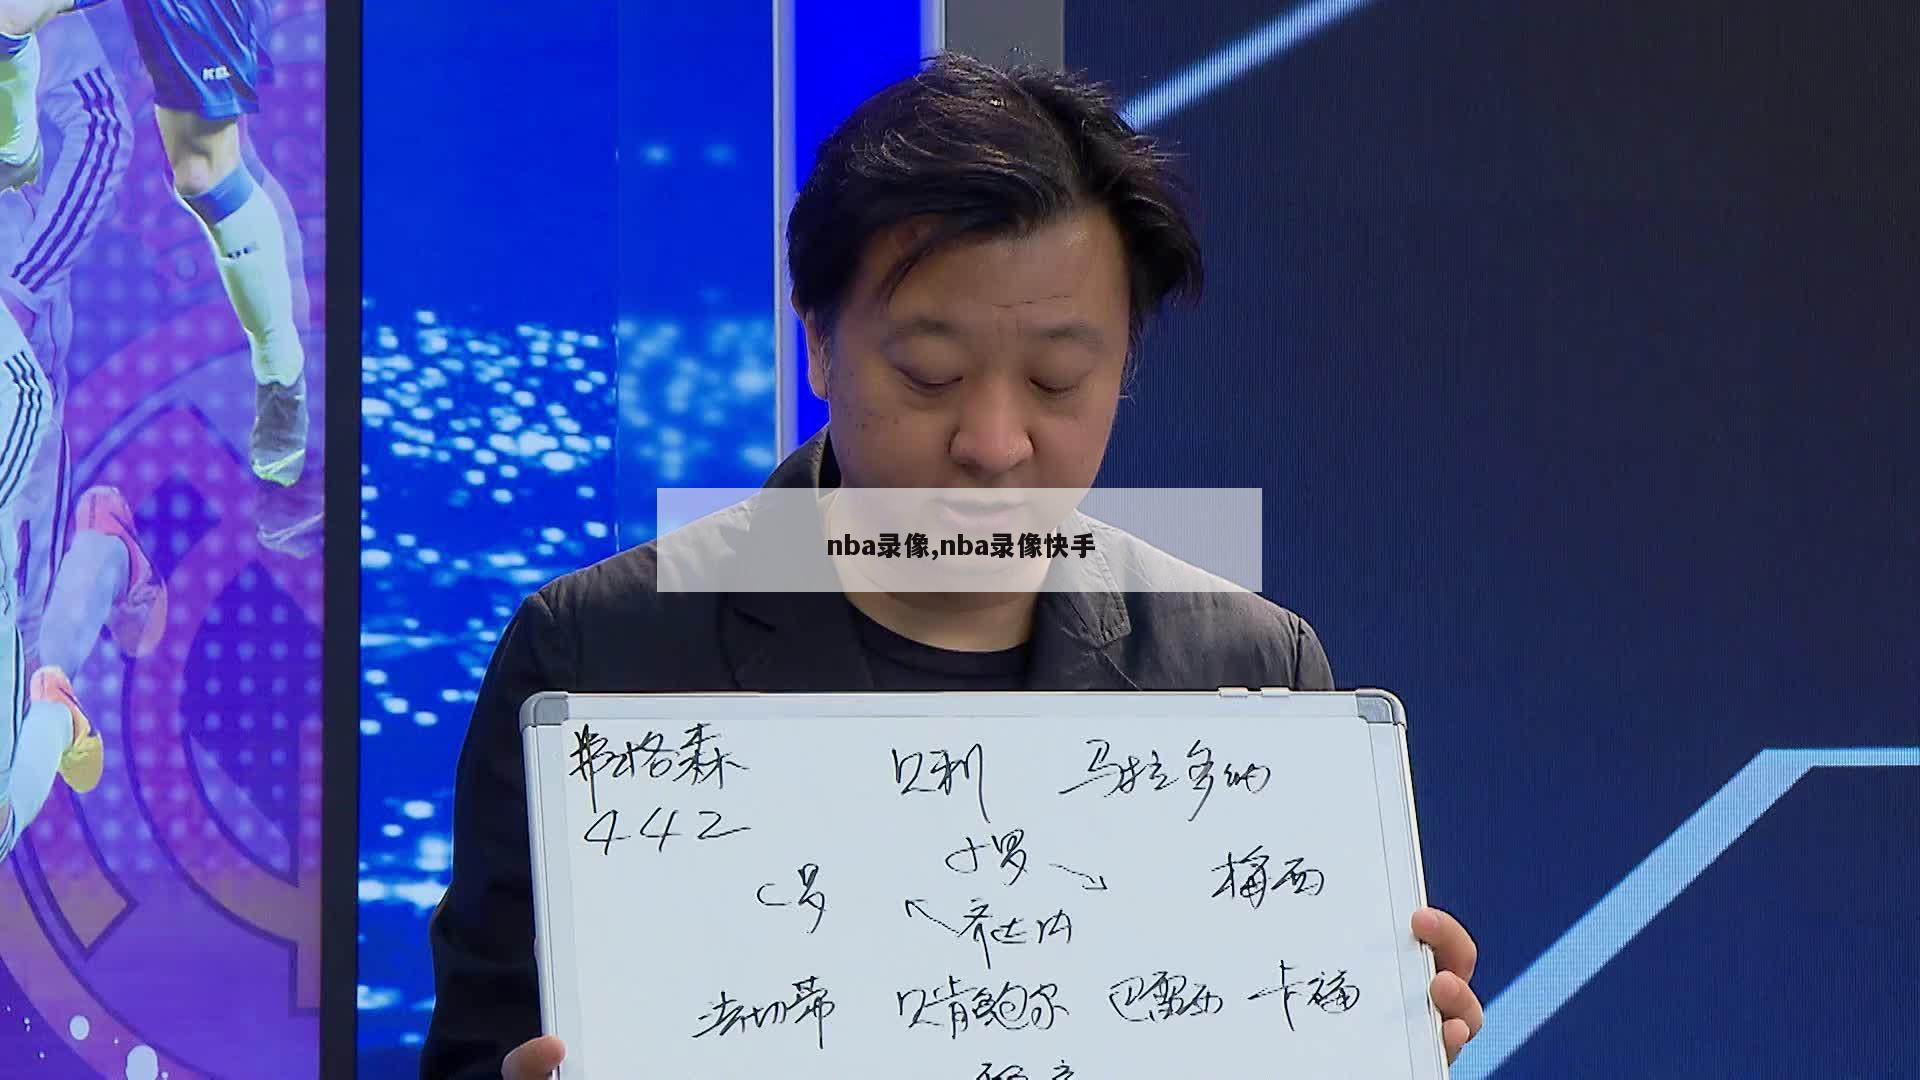 nba录像,nba录像快手
弗格森 贝利 马拉多纳
442
小罗
C罗 梅西
齐达内
法切蒂 贝肯鲍尔 巴雷西 卡福